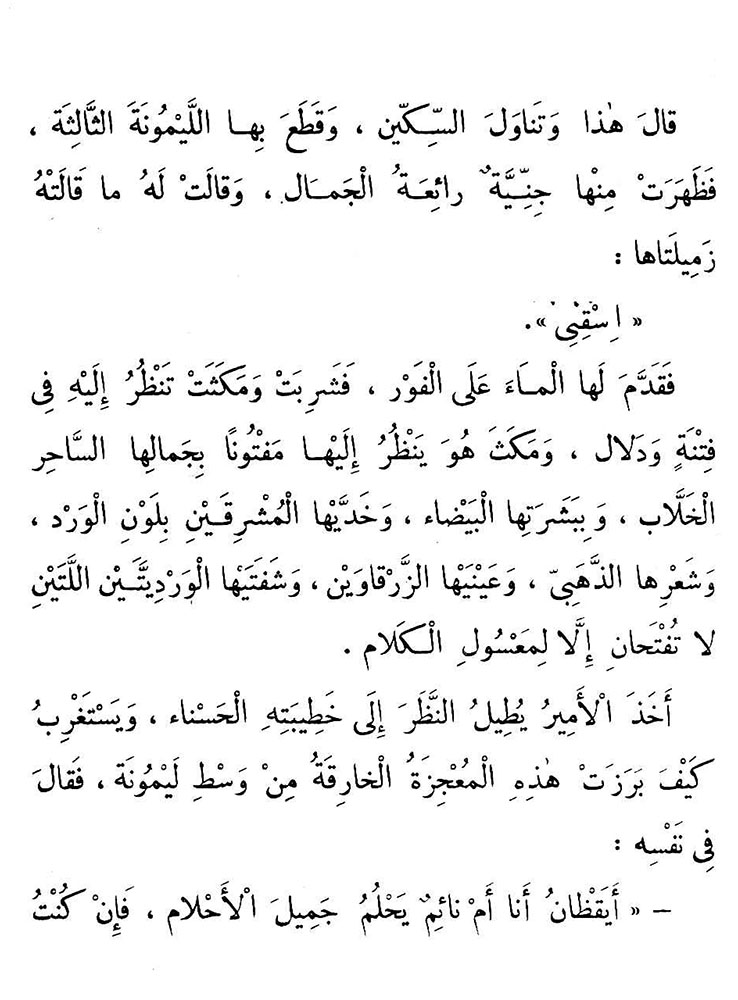 قالَ هٰذا وَتَناوَلَ السِّكّين ، وَقَطَعَ بِها اللَّيْمُونَةَ الثَّالِثَة ،
فَظَهَرَتْ مِنْها جِنِّيَّةٌ رائِعَةُ الْجَمال ، وَقالَتْ لَهُ ما قَالَتْهُ
زَمِيلَتَاها :
« اِسْقِنِي ».
فَقَدَّمَ لَها الْماَءَ عَلَى الْفَوْر ، فَشَرِبَتْ وَمَكَثَتْ تَنْظُرُ إِلَيْهِ فِي
فِتْنَةٍ وَدَلال ، وَمَكَثَ هُوَ يَنْظُرُ إِلَيْها مَفْتُونًا بِجَمالِها السَّاحِر
الْخَلَّاب ، وَبِبَشَرَتِها الْبَيْضاء ، وَخَدَّيْها الْمُشْرِقَيْنِ بِلَوْنِ الْوَرْد ،
وَشَعْرِها الذَّهَبِيّ ، وَعَيْنَيْها الزَّرْقاوَيْن ، وَشَفَتَيْها الْوَرْدِيَّتَيْن اللَّتَيْنِ
لا تُفْتَحانِ إِلَّا لِمَعْسُولِ الْكَلام .
أَخَذَ الْأَمِيرُ يُطِيلُ النَّظَرَ إِلَى خَطِيبَتِهِ الْحَسْناء ، وَيَسْتَغْرِبُ
كَيْفَ بَرَزَتْ هٰذِهِ الْمُعْجِزَةُ الْخارِقَةُ مِنْ وَسْطِ لَيْمُونَة ، فَقالَ
فِي نَفْسِه :
– « أَيَقْظانُ أَنا أَمْ نائِمٌ يَحْلُمُ جَمِيلَ الْأَحْلام ، فَإِنْ كُنْتُ